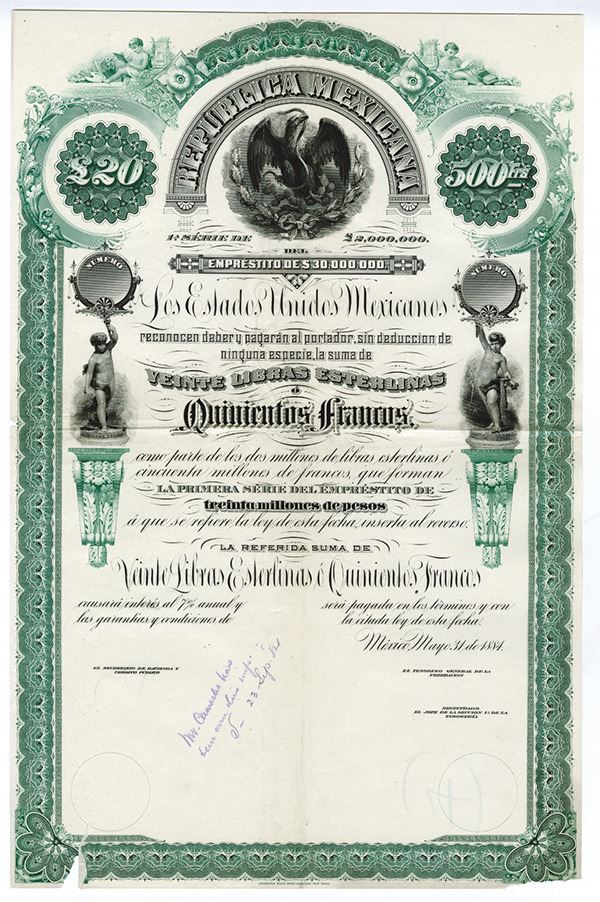 REPÚBLICA MEXICANA
£20
500 Frs
1ª SÉRIE DE £2,000,000.
DEL
EMPRÉSTITO DE $30,000,000.
NÚMERO
NÚMERO
Los Estados Unidos Mexicanos
reconocen deber y pagarán al portador, sin deduccion de
ninguna especie, la suma de
VEINTE LIBRAS ESTERLINAS
ó
Quinientos Francos,
como parte de los dos millones de libras esterlinas ó
cincuenta millones de francos, que forman
LA PRIMERA SÉRIE DEL EMPRÉSTITO DE
treinta millones de pesos
á que se refiere la ley de esta fecha, inserta al reverso.
LA REFERIDA SUMA, DE
Veinte Libras Esterlinas ó Quinientos Francos
causará interés al 7% anual y
las garantias y condiciones de
será pagada en los términos y con
la citada ley de esta fecha.
México, Mayo 31 de 1884.
EL SECRETARIO DE HACIENDA Y
CRÉDITO PÚBLICO
EL TESORERO GENERAL DE LA
FEDERACION
REGISTRADO.
EL JEFE DE LA SECCION 1ª DE LA
TESORERÍA
Mr. Camacho has
23 Sep